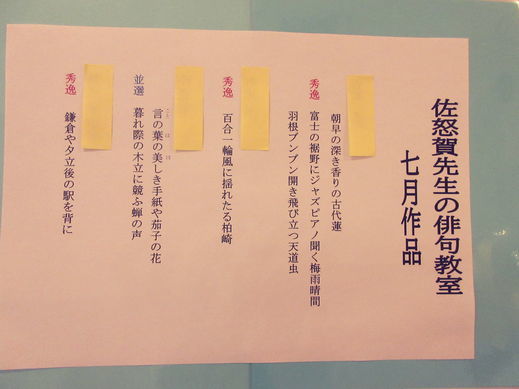 佐怒賀先生の俳句教室
七月作品
朝早の深き香りの古代蓮
秀逸 富士の裾野にジャズピアノ聞く梅雨晴間
羽根ブンブン開き飛び立つ天道虫
秀逸 百合一輪風に揺れたる柏崎
言の葉の美しき手紙や茄子の花
並選 暮れ際の木立に競ふ蝉の声
秀逸 鎌倉や夕立後の駅を背に